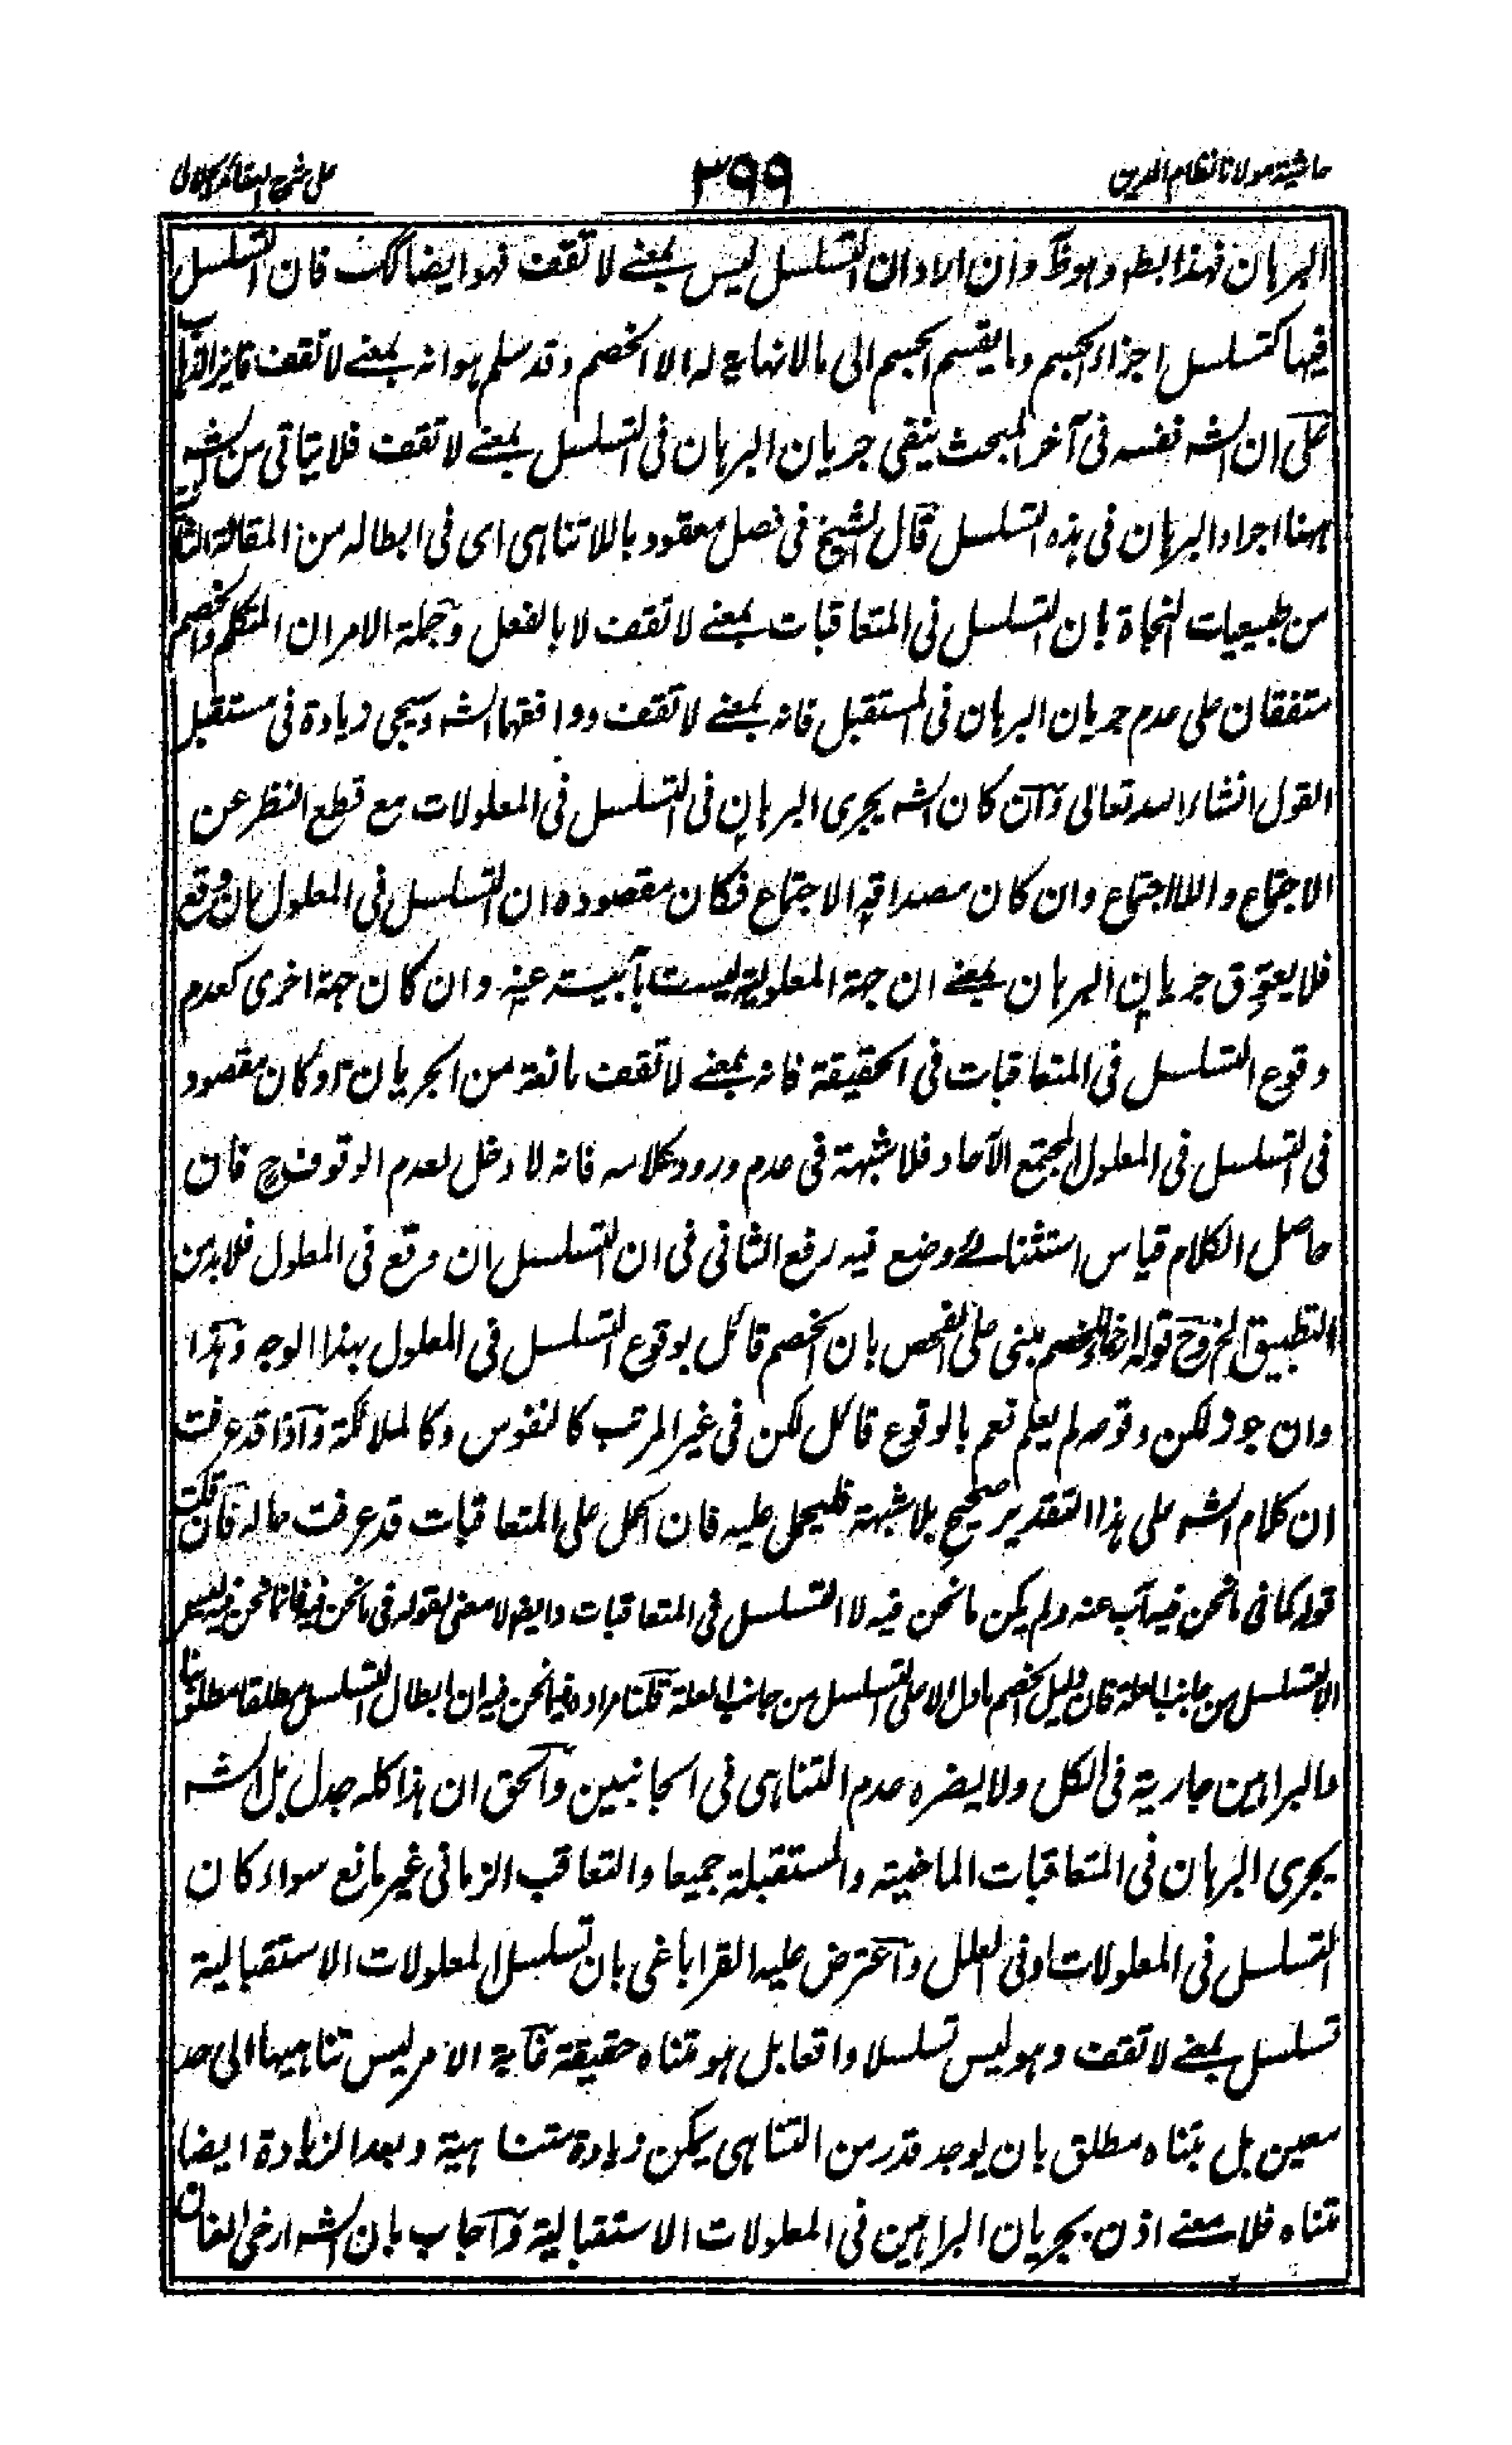 حاشية مولانا نظام الدين
٣٩٩
على شرح العقائد الجلالى
البرهان فهذا ابطه وهو ظ وان اراد ان التسلسل ليس بمعنے لا تقف فهو ايضا كك فان التسلسل
فيها كتسلسل اجزاء الجسم وما يقسم الجسم الى مالا نهاية له الا الخصم وقد سلم هو انه بمعنے لا تقف
على ان الشه نفسه فى آخر المبحث ينفى جريان البرهان فى التسلسل بمعنے لا تقف فلا يتاتى من الشه
ههنا اجراء البرهان فى هذه التسلسل قال الشيخ فى فصل معقود باللاتناهى اى فى ابطاله من المقالة الثانية
من طبيعيات النجاة بان التسلسل فى المتعاقبات بمعنے لا تقف لا بالفعل وجملة الامر ان المتكلم والخصم
متفقان على عدم جريان البرهان فى المستقبل فانه بمعنے لا تقف ووافقها الشه وسيجى زيادة فى مستقبل
القول انشاء الله تعالى وان كان الشه يجرى البرهان فى التسلسل فى المعلولات مع قطع النظر عن
الاجتماع واللااجتماع وان كان مصداقه الاجتماع فكان مقصوده ان التسلسل فى المعلول ان وقع
فلا يعوق جريان البرهان بمعنے ان جهة المعلولية ليست بآبية عنه وان كان جهة اخرى كعدم
وقوع التسلسل فى المتعاقبات فى الحقيقة فانه بمعنے لا تقف مانعة من الجريان او كان مقصوده
فى التسلسل فى المعلول المجتمع الآحاد فلا شبهة فى عدم ورود كلامه فانه لا دخل لعدم الوقوف ح فان
حاصل الكلام قياس استثنائے وضع فيه رفع الثانى فى ان التسلسل ان وقع فى المعلول فلا بد من
التطبيق الخ وح قوله الخصم مبنى على الفحص بان الخصم قائل بوقوع التسلسل فى المعلول بهذا الوجه وهذا
وان جوز لكن وقوعه لم يعلم نعم بالوقوع قائل لكن فى غير المرتب كالنفوس وكالملائكة واذا قد عرفت
ان كلام الشه على هذا التقدير صحيح بلا شبهة فليحمل عليه فان الحمل على المتعاقبات قد عرفت حاله فان قلت
قوله كما فى ما نحن فيه آب عنه ولم يكن ما نحن فيه لا التسلسل فى المتعاقبات وايضا لا معنى لقوله فى ما نحن فيه فانما نحن فيه ليس
الا التسلسل من جانب العلة فان دليل الخصم ما دل الا على التسلسل من جانب العلة قلنا مراده فيما نحن فيه ان ابطال التسلسل مطلقا مطلوبنا
والبراهين جارية فى الكل ولا يضره عدم التناهى فى الجانبين والحق ان هذا كله جدل بل الشه
يجرى البرهان فى المتعاقبات الماضية والمستقبلة جميعا والتعاقب الزمانى غير مانع سواء كان
التسلسل فى المعلولات او فى العلل واعترض عليه القراباغى بان تسلسل المعلولات الاستقبالية
تسلسل بمعنے لا تقف وهو ليس تسلسلا واقعا بل هو متناه حقيقة غاية الامر ليس تناهيها الى حد
معين بل بتناه مطلق بان يوجد قدر من التناهى يمكن زيادة متناهية وبعد الزيادة ايضا
متناه فلا معنے اذن بجريان البراهين فى المعلولات الاستقبالية واجاب بان الشه ارخى العنان